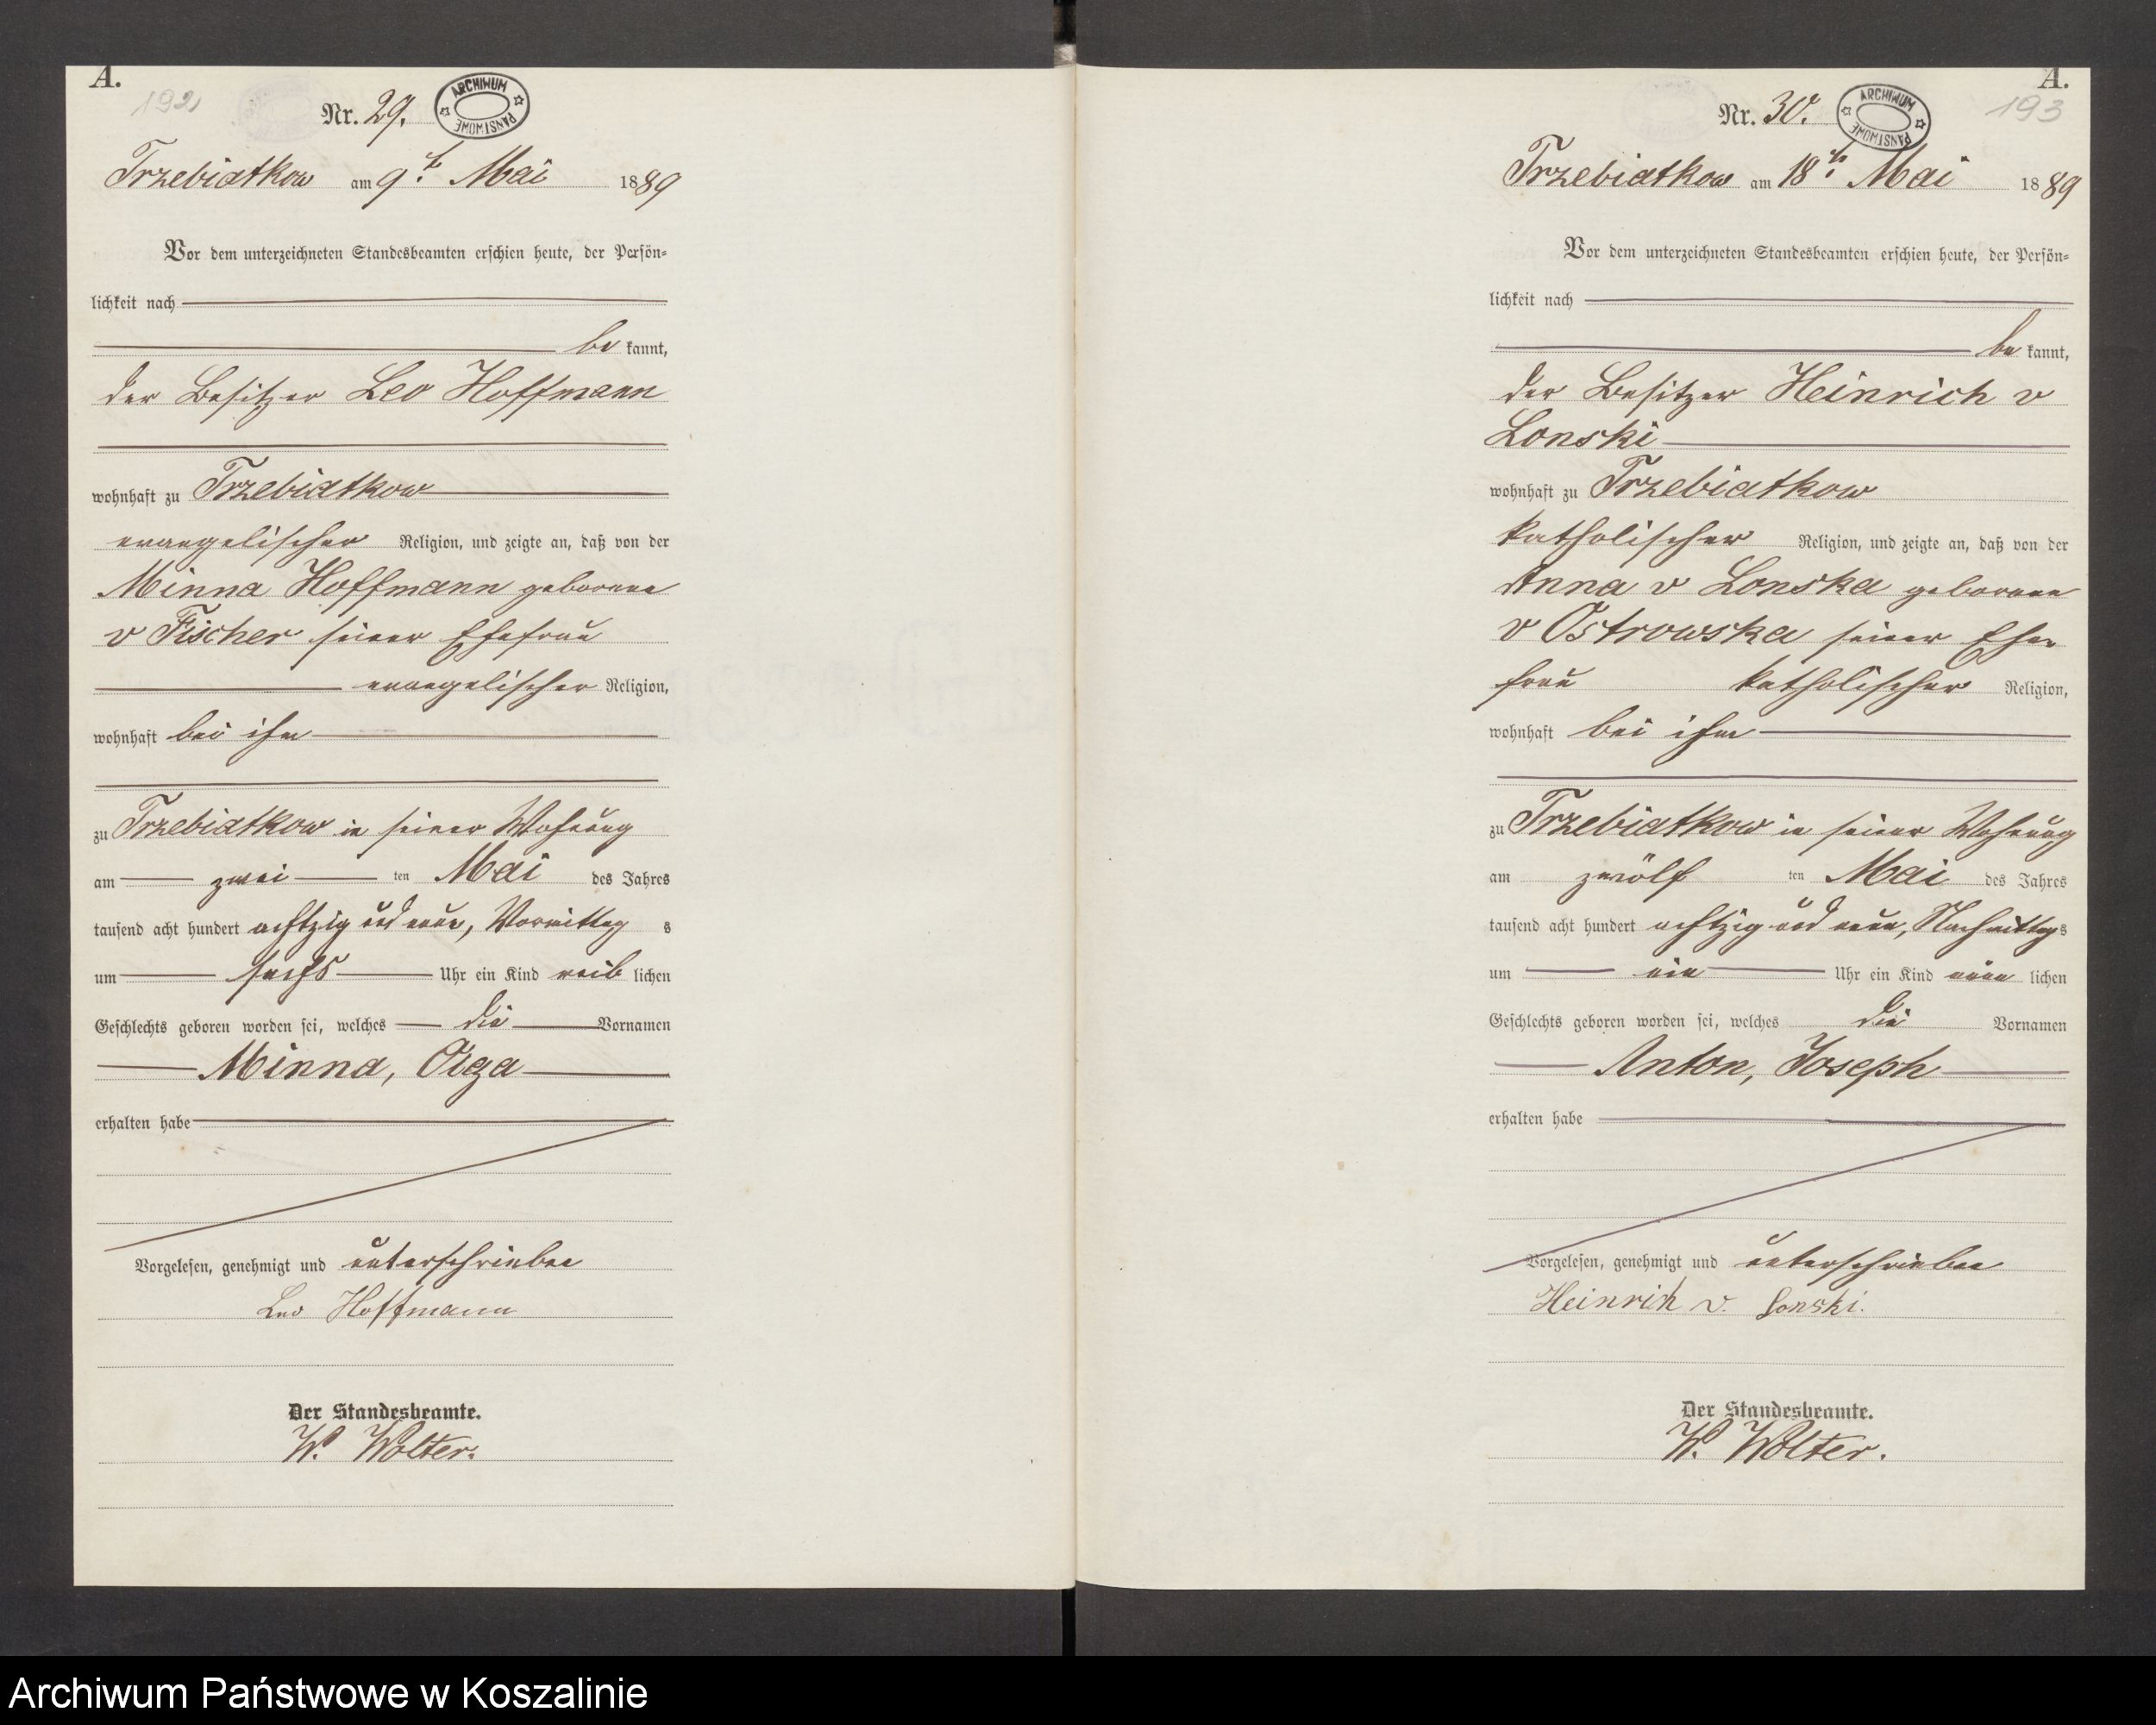 A.
192
Nr. 29.
ARCHIWUM PAŃSTWOWE
Trzebiatkow am 9t. Mai 1889
Vor dem unterzeichneten Standesbeamten erschien heute, der Persön-
lichkeit nach
be kannt,
der Besitzer Leo Hoffmann
wohnhaft zu Trzebiatkow
evangelischer Religion, und zeigte an, daß von der
Minna Hoffmann geborene
v Fischer seiner Ehefrau
evangelischer Religion,
wohnhaft bei ihm
zu Trzebiatkow in seiner Wohnung
am zwei ten Mai des Jahres
tausend acht hundert achtzig und neun, Vormittag s
um sechs Uhr ein Kind weib lichen
Geschlechts geboren worden sei, welches die Vornamen
Minna, Olga
erhalten habe
Vorgelesen, genehmigt und unterschrieben
Leo Hoffmann
Der Standesbeamte.
W. Wolter.
A.
193
Nr. 30.
ARCHIWUM PAŃSTWOWE
Trzebiatkow am 18t. Mai 1889
Vor dem unterzeichneten Standesbeamten erschien heute, der Persön-
lichkeit nach
be kannt,
der Besitzer Heinrich v
Lonski
wohnhaft zu Trzebiatkow
katholischer Religion, und zeigte an, daß von der
Anna v Lonska geborene
v Ostrowska seiner Ehe
frau katholischer Religion,
wohnhaft bei ihm
zu Trzebiatkow in seiner Wohnung
am zwölf ten Mai des Jahres
tausend acht hundert achtzig und neun, Nachmittag s
um ein Uhr ein Kind männ lichen
Geschlechts geboren worden sei, welches die Vornamen
Anton, Joseph
erhalten habe
Vorgelesen, genehmigt und unterschrieben
Heinrich v. Lonski.
Der Standesbeamte.
W. Wolter.
Archiwum Państwowe w Koszalinie